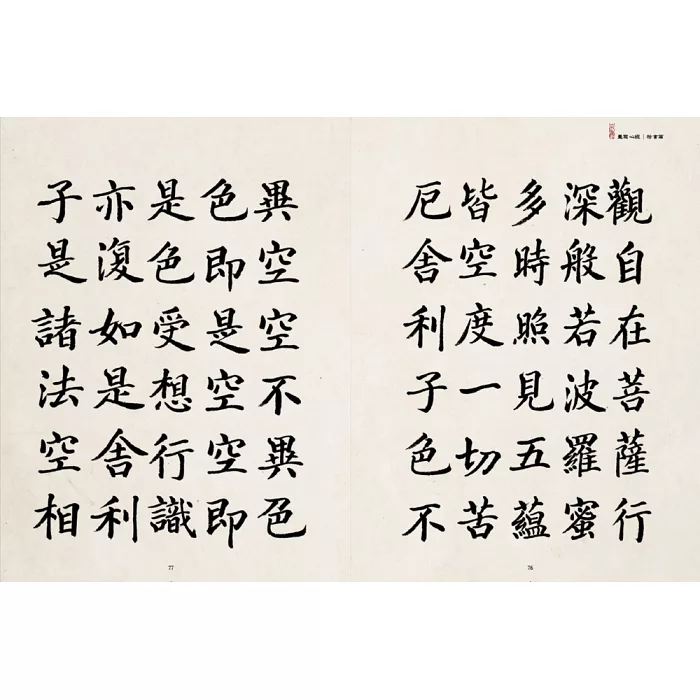 心經｜楷書篇
觀自在菩薩行
深般若波羅蜜
多時照見五蘊
皆空度一切苦
厄舍利子色不
76
異空空不異色
色即是空空即
是色受想行識
亦復如是舍利
子是諸法空相
77